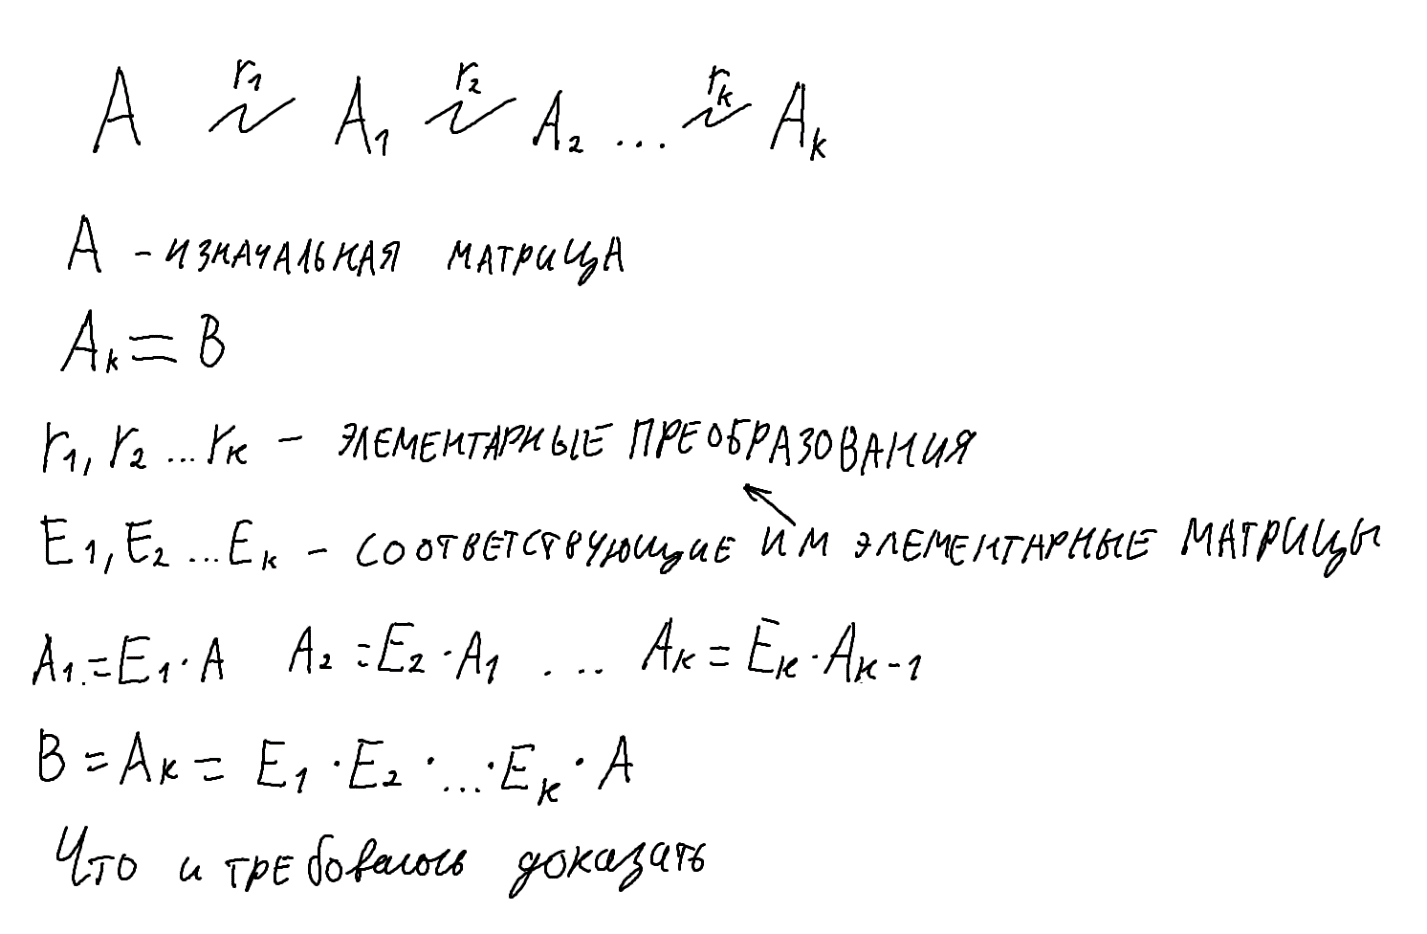 A ~r₁ A₁ ~r₂ A₂ ... ~rₖ Aₖ
A - изначальная матрица
Aₖ = B
r₁, r₂ ... rₖ - элементарные преобразования
E₁, E₂ ... Eₖ - соответствующие им элементарные матрицы
A₁ = E₁ · A A₂ = E₂ · A₁ ... Aₖ = Eₖ · Aₖ₋₁
B = Aₖ = E₁ · E₂ · ... · Eₖ · A
Что и требовалось доказать